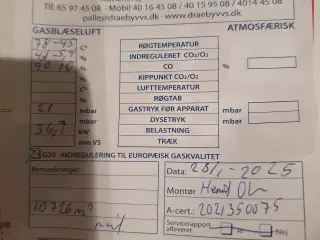 Tlf. 65 97 45 08 - Mobil 40 16 45 08 / 40 15 95 08 / 4014 45 08
palle@draebyvvs.dk - www.draebyvvs.dk
GASBLÆSELUFT ATMOSFÆRISK
°C RØGTEMPERATUR
% INDREGULERET CO₂/O₂ %
CO
KIPPUNKT CO₂/O₂
°C LUFTTEMPERATUR
% RØGTAB
21 mbar GASTRYK FØR APPARAT mbar
mbar DYSETRYK mbar
36,7 kW BELASTNING
mm VS TRÆK
G20 INDREGULERING TIL EUROPÆISK GASKVALITET
Bemærkninger:
10726 m³
Dato: 28/1-2025
Montør
A-cert.: 2021350075
Servicerapport afleveret Ja Nej